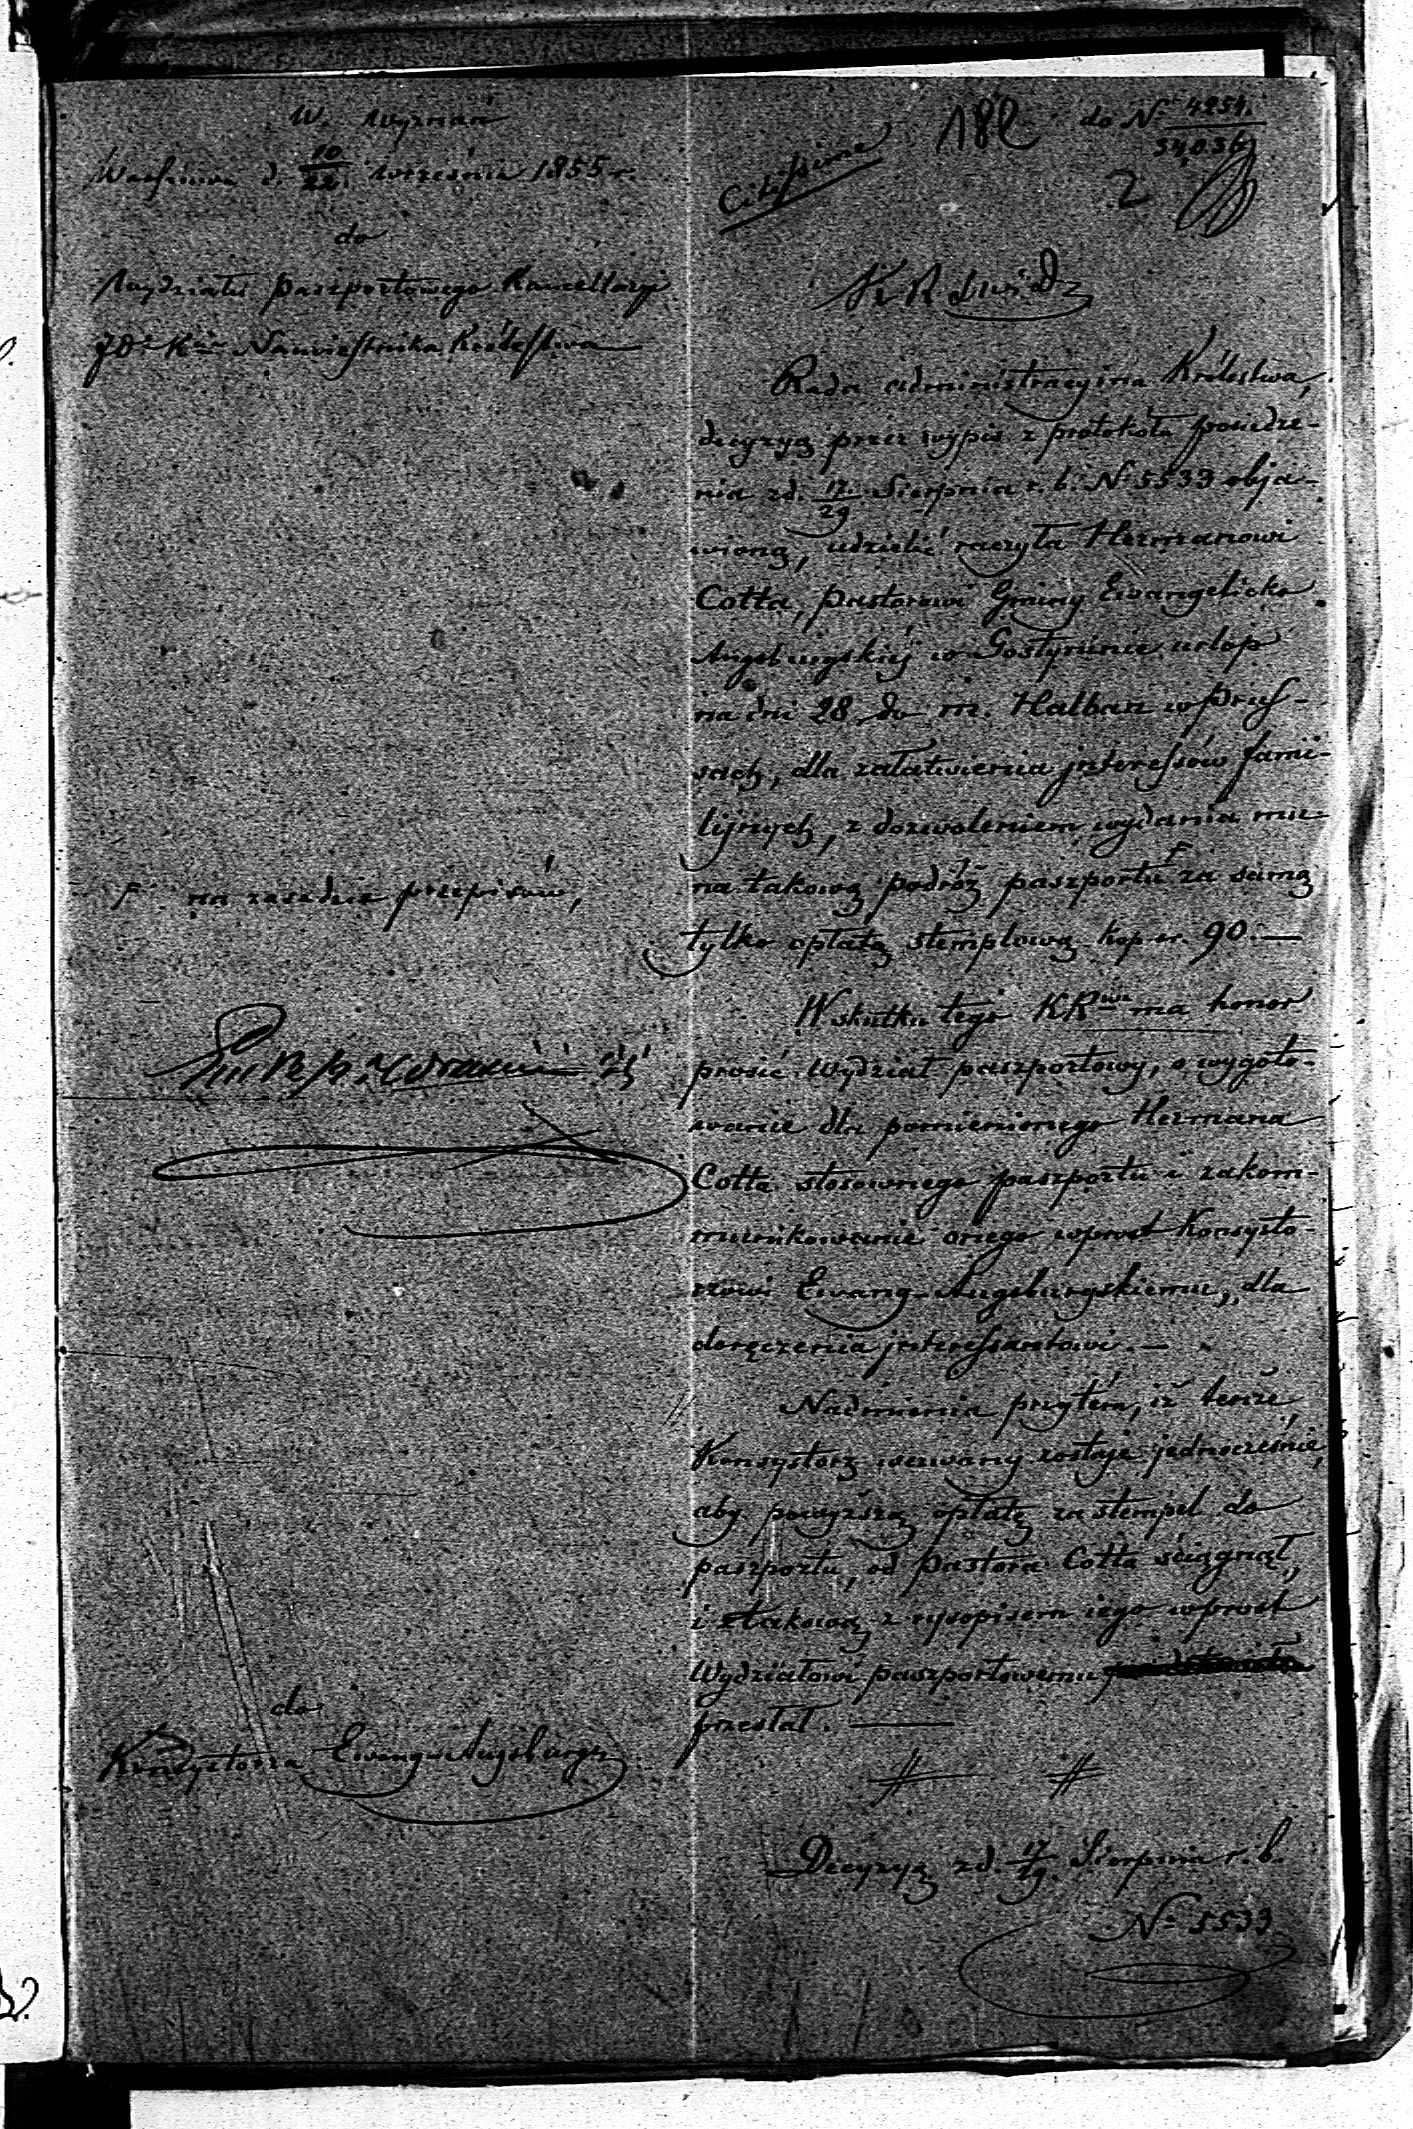 W. Wyznań
Warszawa d. 10/22 Września 1855 r.
do
Wydziału paszportowego Kancellaryi
JO. Kcia Namiestnika Królestwa
F na zasadzie przepisów,
do
Konsystorza Ewang-Augsburgo
Citissime
182
do Nr 4254.
54,036
2
KRSWiD
Rada administracyina Królestwa,
decyzyą przez wypis z protokołu posiedze-
nia z d. 17/29 Sierpnia r. b. Nr 5533 obja-
wioną, udzielić raczyła Hermanowi
Cotta, pastorowi Gminy Ewangelicko
Augsburgskiéj w Gostyninie urlop
na dni 28 do m. Halban w Prus-
sach, dla załatwienia interessów fami-
lijnych, z dozwoleniem wydania mu
na takową podróż paszportu F za samą
tylko opłatą stemplową kop sr. 90. —
W skutku tego KR ma honor
prosić Wydział paszportowy, o wygoto-
wanie dla pomienionego Hermana
Cotta stosownego paszportu i zakom-
munikowanie onego wprost Konsysto-
rzowi Ewang-Augsburgskiemu, dla
doręczenia interessantowi. —
Nadmienia przytém, iż tenże
Konsystorz wezwany zostaje jednocześnie,
aby powyższą opłatę za stempel do
paszportu, od pastora Cotta ściągnął,
i takową z rysopisem iego wprost
Wydziałowi paszportowemu
przesłał. —
Decyzyą z d. 17/29 Sierpnia r. b.
Nr 5533